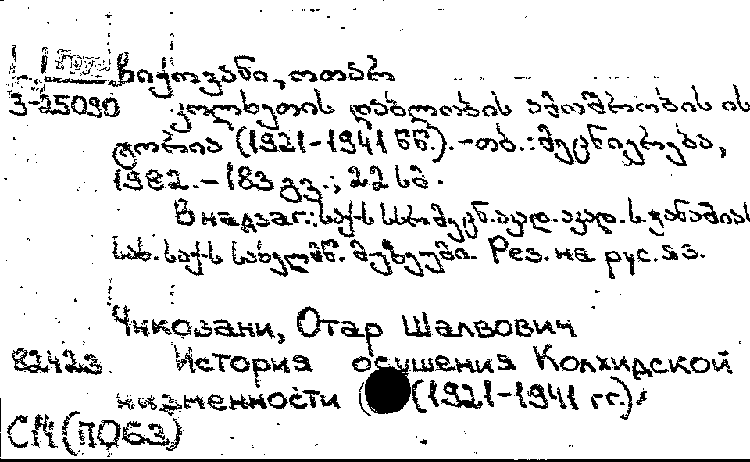 Груз
ჩიქოვანი, ოთარ
3-25090 კოლხეთის დაბლობის ამოშრობის ის
ტორია (1921-1941 წწ.).-თბ.:მეცნიერება,
1982.-183 გვ.; 22 სმ.
В надзаг.: საქ-ს სსრ მეცნ. აკად. აკად. ს. ჯანაშიას
სახ. საქ-ს სახელმწ. მუზეუმი. Рез. на рус. яз.
Чиковани, Отар Шалвович
82423 История осушения Колхидской
низменности (1921-1941 гг.)
СПЧ (ПОБЗ)